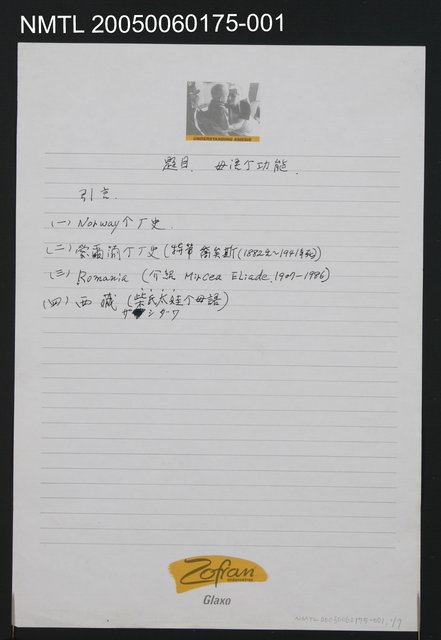 NMTL 20050060175-001
UNDERSTANDING EMESIS
題目. 母語个功能.
引言.
(一) Norway个厂史.
(二) 愛爾蘭个厂史 (特筆 喬埃斯 (1882生~1941年死)
(三) Romania (介紹 Mircea Eliade 1907-1986)
(四) 西藏 (柴氏太娃个母語)
ザシダワ
Zofran
ondansetron
Glaxo
NMTL20050060175-001, 1/7